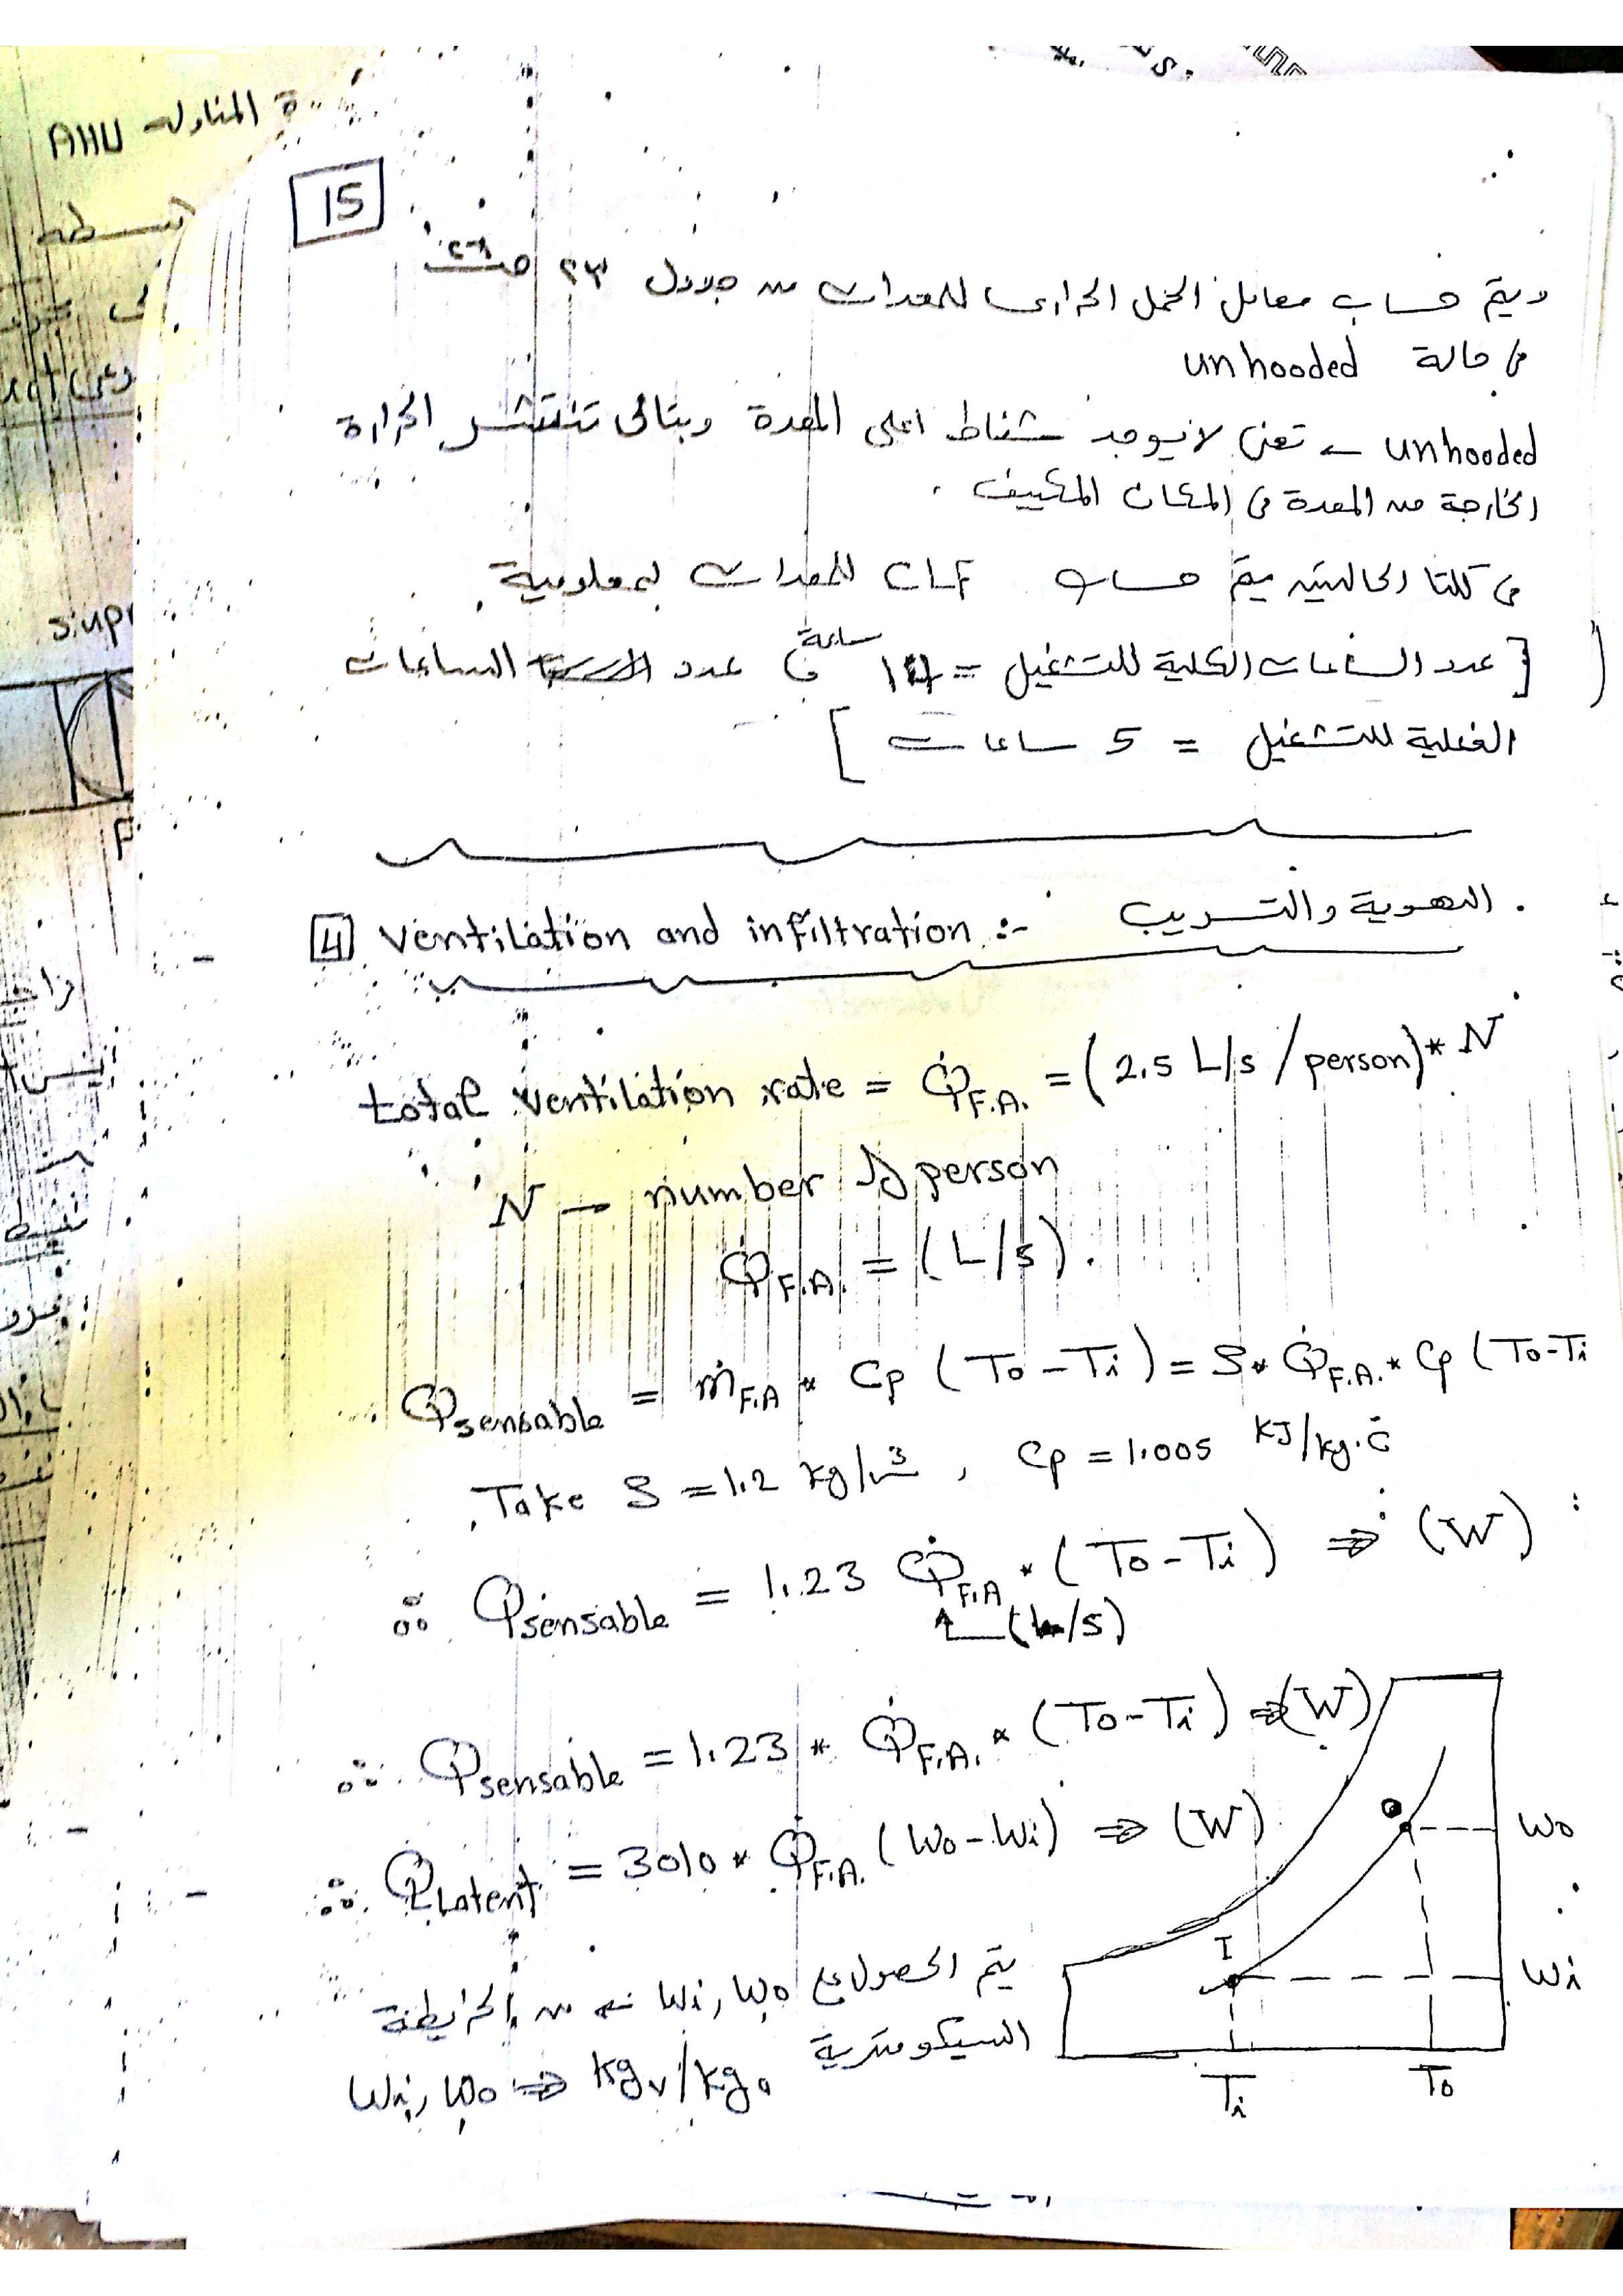 15
ويتم حساب معامل الحمل الحرارى للمعدات من جدول ٢٣ صـ
فى حالة unhooded
unhooded ← تعنى لا يوجد شفاط اعلى المعدة وبتالى تنتشر الحرارة
الخارجة من المعدة فى المكان المكييف .
فى كلتا الحالتين يتم حساب CLF للمعدات بمعلومية
[عدد الساعات الكلية للتشغيل = 14 ساعة و عدد الساعات
الفعلية للتشغيل = 5 ساعات]
4 ventilation and infiltration :- التهوية والتسريب .
total ventilation rate = Q̇F.A. = (2.5 L/s / person) * N
N → number of person
Q̇F.A. = (L/s) .
Qsensable = ṁF.A * Cp (To - Ti) = ρ * Q̇F.A. * Cp (To-Ti
Take ρ = 1.2 kg/m³ , Cp = 1.005 KJ/kg.c̊
∴ Qsensable = 1.23 Q̇F.A * (To - Ti) ⇒ (W)
(L/s)
∴ Qsensable = 1.23 * Q̇F.A. * (To - Ti) ⇒ (W)
∴ QLatent = 3010 * Q̇F.A. (Wo - Wi) ⇒ (W)
يتم الحصول على Wo , Wi من الخريطة
السيكومترية
Wi , Wo ⇒ kgv/kga
o
Wo
I
Wi
Ti
To
AHU المناوله